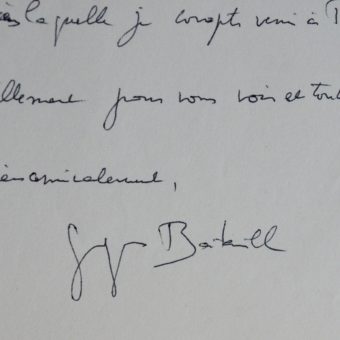 laquelle je compte venir à P
ellement pour vous voir et tout
ien amicalement,
Georges Bataille